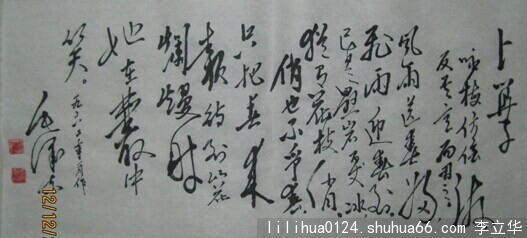 卜算子
咏梅 仿陆游
反其意而用之
风雨送春归
飞雪迎春到
已是悬岩百丈冰
犹有花枝俏
俏也不争春
只把春来
报待到山花
烂熳时
她在丛中
笑。
毛泽东
12/12/
lilihua0124.shuhua66.com 李立华